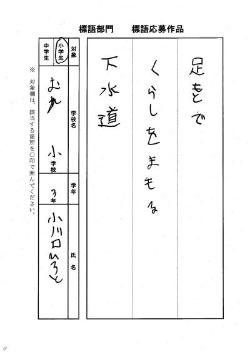 標語部門　標語応募作品
足もとで
くらしをまもる
下水道
対象
小学生
中学生
学校名
小
学校
学年
3年
氏名
小川口ひろと
※対象欄は、該当する箇所を〇印で囲んでください。